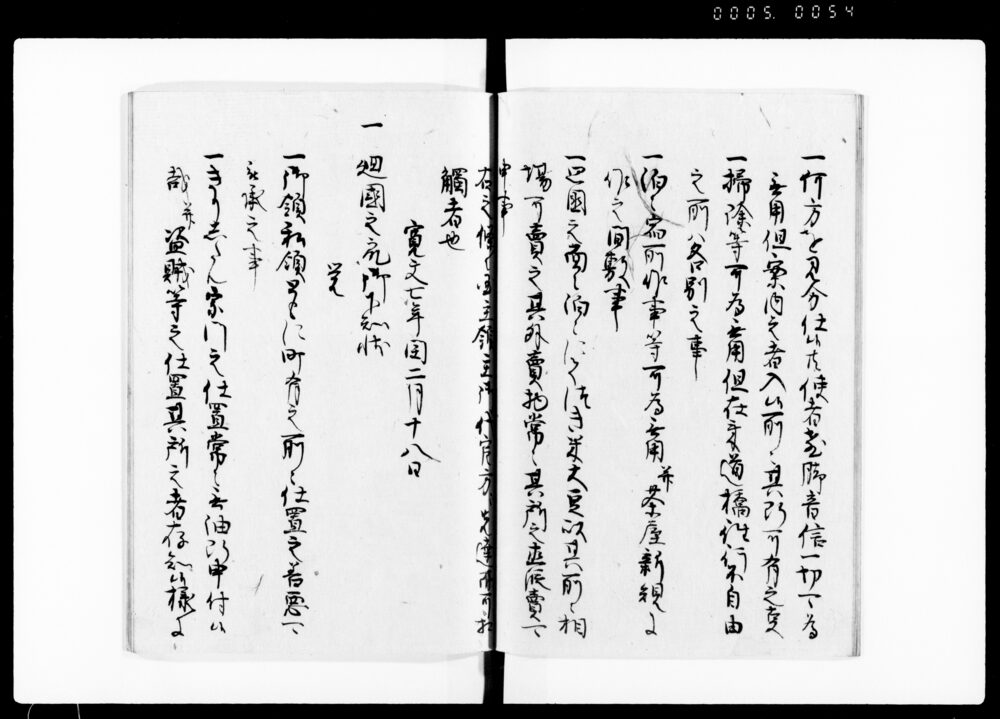 0005. 0054
一何方ゟも見分仕候共使者飛脚音信一切可為
無用但案内之者入候所ハ其所可有之事
一掃除等可為無用但在来道橋往行不自由
之所ハ各別之事
一泊々宿所作事等可為無用并茶屋新規ニ
作之間敷事
一巡国之面々泊々ニ而つき米大豆以其所之相
場可賣之其外賣物常々其所之直段賣可
申事
右之條々国主領主御代官方江先達而可相
觸者也
寛文七年閏二月十八日
一廻國之衆御下知状
覚
一御領私領共ニ町有之所々仕置之善悪可
承之事
一きりしたん宗門之仕置常々無油断申付候
哉并盗賊等之仕置其所之者存知候様ニ